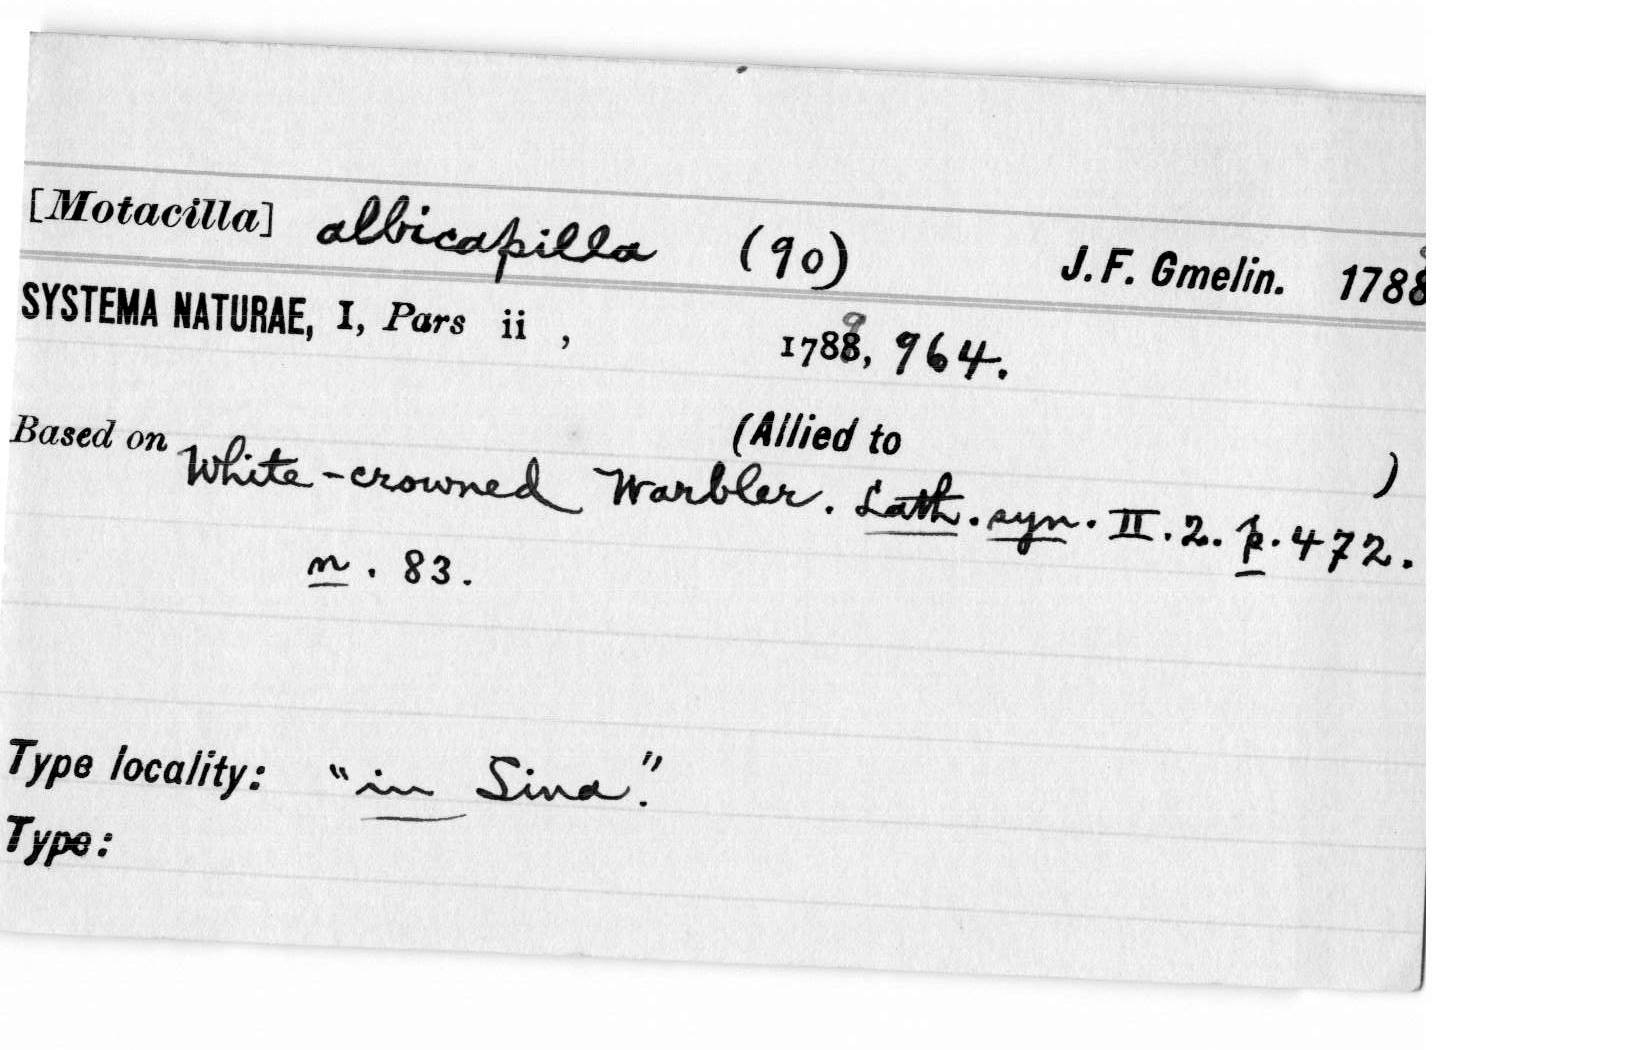 [Motacilla] albicapilla (90) J. F. Gmelin. 1788
SYSTEMA NATURAE, I, Pars ii , 1788, 9 964.
(Allied to )
Based on White-crowned Warbler. Lath. syn. II. 2. p. 472.
n. 83.
Type locality: "in Sina".
Type: